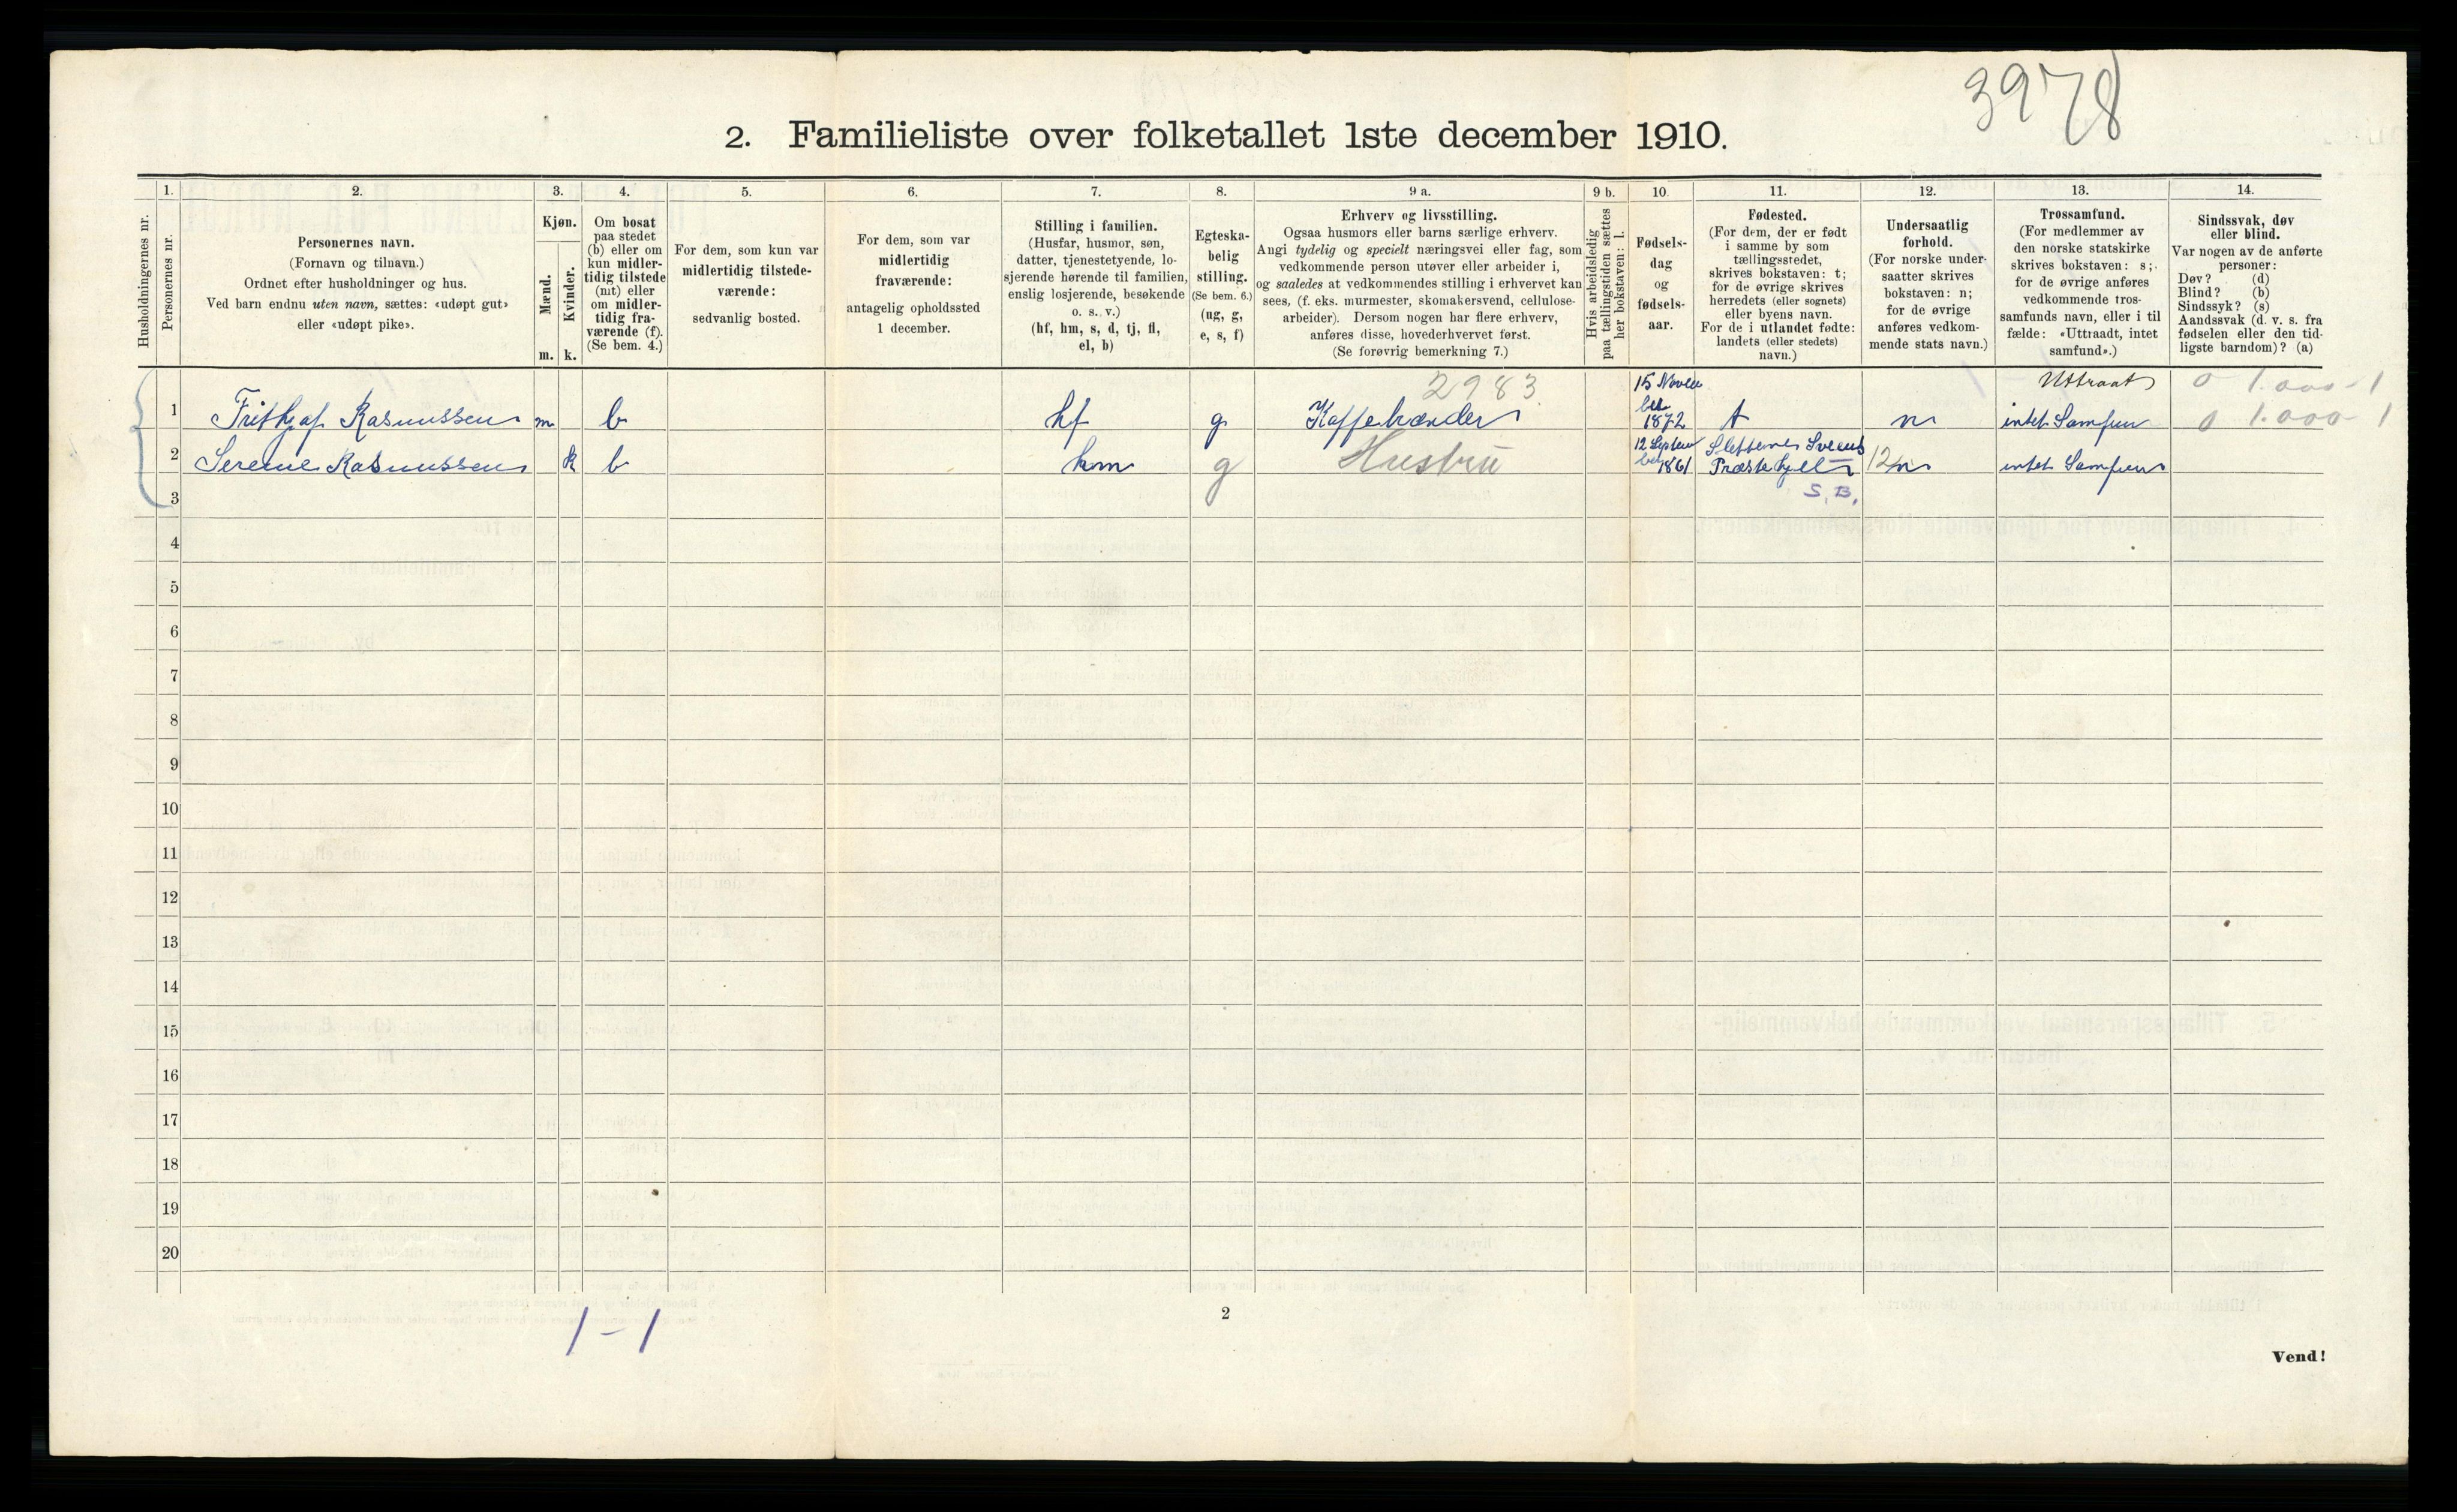 3978
2. Familieliste over folketallet 1ste december 1910.
Husholdningernes nr.
1.
Personernes nr.
2.
Personernes navn.
(Fornavn og tilnavn.)
Ordnet efter husholdninger og hus.
Ved barn endnu uten navn, sættes: «udøpt gut»
eller «udøpt pike».
3.
Kjøn.
Mænd.
m.
Kvinder.
k.
4.
Om bosat
paa stedet
(b) eller om
kun midler-
tidig tilstede
(mt) eller
om midler-
tidig fra-
værende (f).
(Se bem. 4.)
5.
For dem, som kun var
midlertidig tilstede-
værende:
sedvanlig bosted.
6.
For dem, som var
midlertidig
fraværende:
antagelig opholdssted
1 december.
7.
Stilling i familien.
(Husfar, husmor, søn,
datter, tjenestetyende, lo-
sjerende hørende til familien,
enslig losjerende, besøkende
o. s. v.)
(hf, hm, s, d, tj, fl,
el, b)
8.
Egteska-
belig
stilling.
(Se bem. 6.)
(ug, g,
e, s, f)
9 a.
Erhverv og livsstilling.
Ogsaa husmors eller barns særlige erhverv.
Angi tydelig og specielt næringsvei eller fag, som
vedkommende person utøver eller arbeider i,
og saaledes at vedkommendes stilling i erhvervet kan
sees, (f. eks. murmester, skomakersvend, cellulose-
arbeider). Dersom nogen har flere erhverv,
anføres disse, hovederhvervet først.
(Se forøvrig bemerkning 7.)
9 b.
Hvis arbeidsledig
paa tællingstiden sættes
her bokstaven: l.
10.
Fødsels-
dag
og
fødsels-
aar.
11.
Fødested.
(For dem, der er født
i samme by som
tællingsstedet,
skrives bokstaven: t;
for de øvrige skrives
herredets (eller sognets)
eller byens navn.
For de i utlandet fødte:
landets (eller stedets)
navn.)
12.
Undersaatlig
forhold.
(For norske under-
saatter skrives
bokstaven: n;
for de øvrige
anføres vedkom-
mende stats navn.)
13.
Trossamfund.
(For medlemmer av
den norske statskirke
skrives bokstaven: s;
for de øvrige anføres
vedkommende tros-
samfunds navn, eller i til
fælde: «Uttraadt, intet
samfund».)
14.
Sindssvak, døv
eller blind.
Var nogen av de anførte
personer:
Døv? (d)
Blind? (b)
Sindssyk? (s)
Aandssvak (d. v. s. fra
fødselen eller den tid-
ligste barndom)? (a)
2983 15 Novem Uttraat 0 1.000-1
1 Frithjof Rasmussen m b hf g Kaffebrænder ber 1872 t n intet Samfun 0 1.000-1
12 Septem
2 Serene Rasmussen k b hm g Hustru ber 1861 Præstegjeld 12 n intet Samfun
3 S. B.
4
5
6
7
8
9
10
11
12
13
14
15
16
17
18
19
20
1-1
2
Vend!